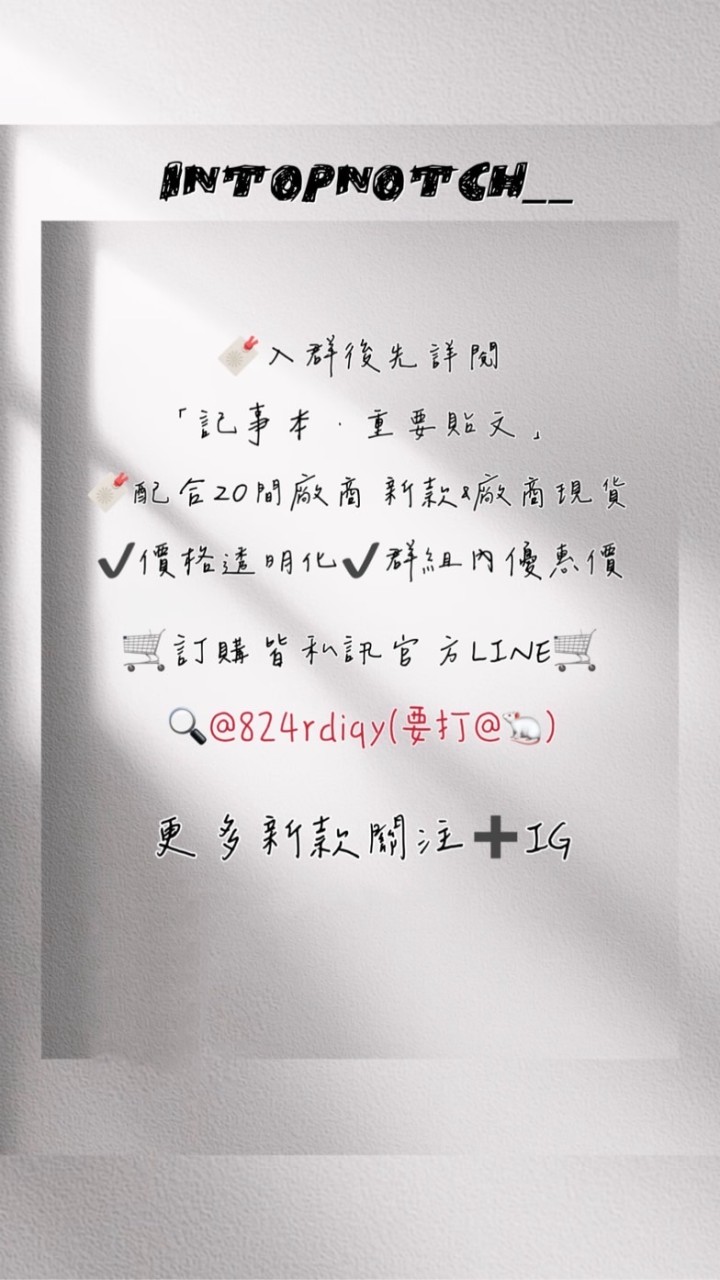 INTOPNOTCH__
入群後先詳閱
「記事本·重要貼文」
配合20間廠商 新款&廠商現貨
✔價格透明化✔群組內優惠價
🛒訂購皆私訊官方LINE🛒
🔍@824rdiqy(要打@🐁)
更多新款關注➕IG